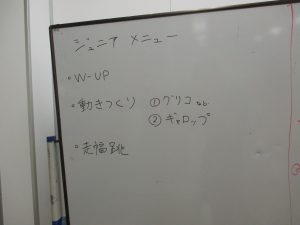 ジュニア メニュー
・W-UP
・動きつくり ①グリコ
②ギャロップ
・走幅跳